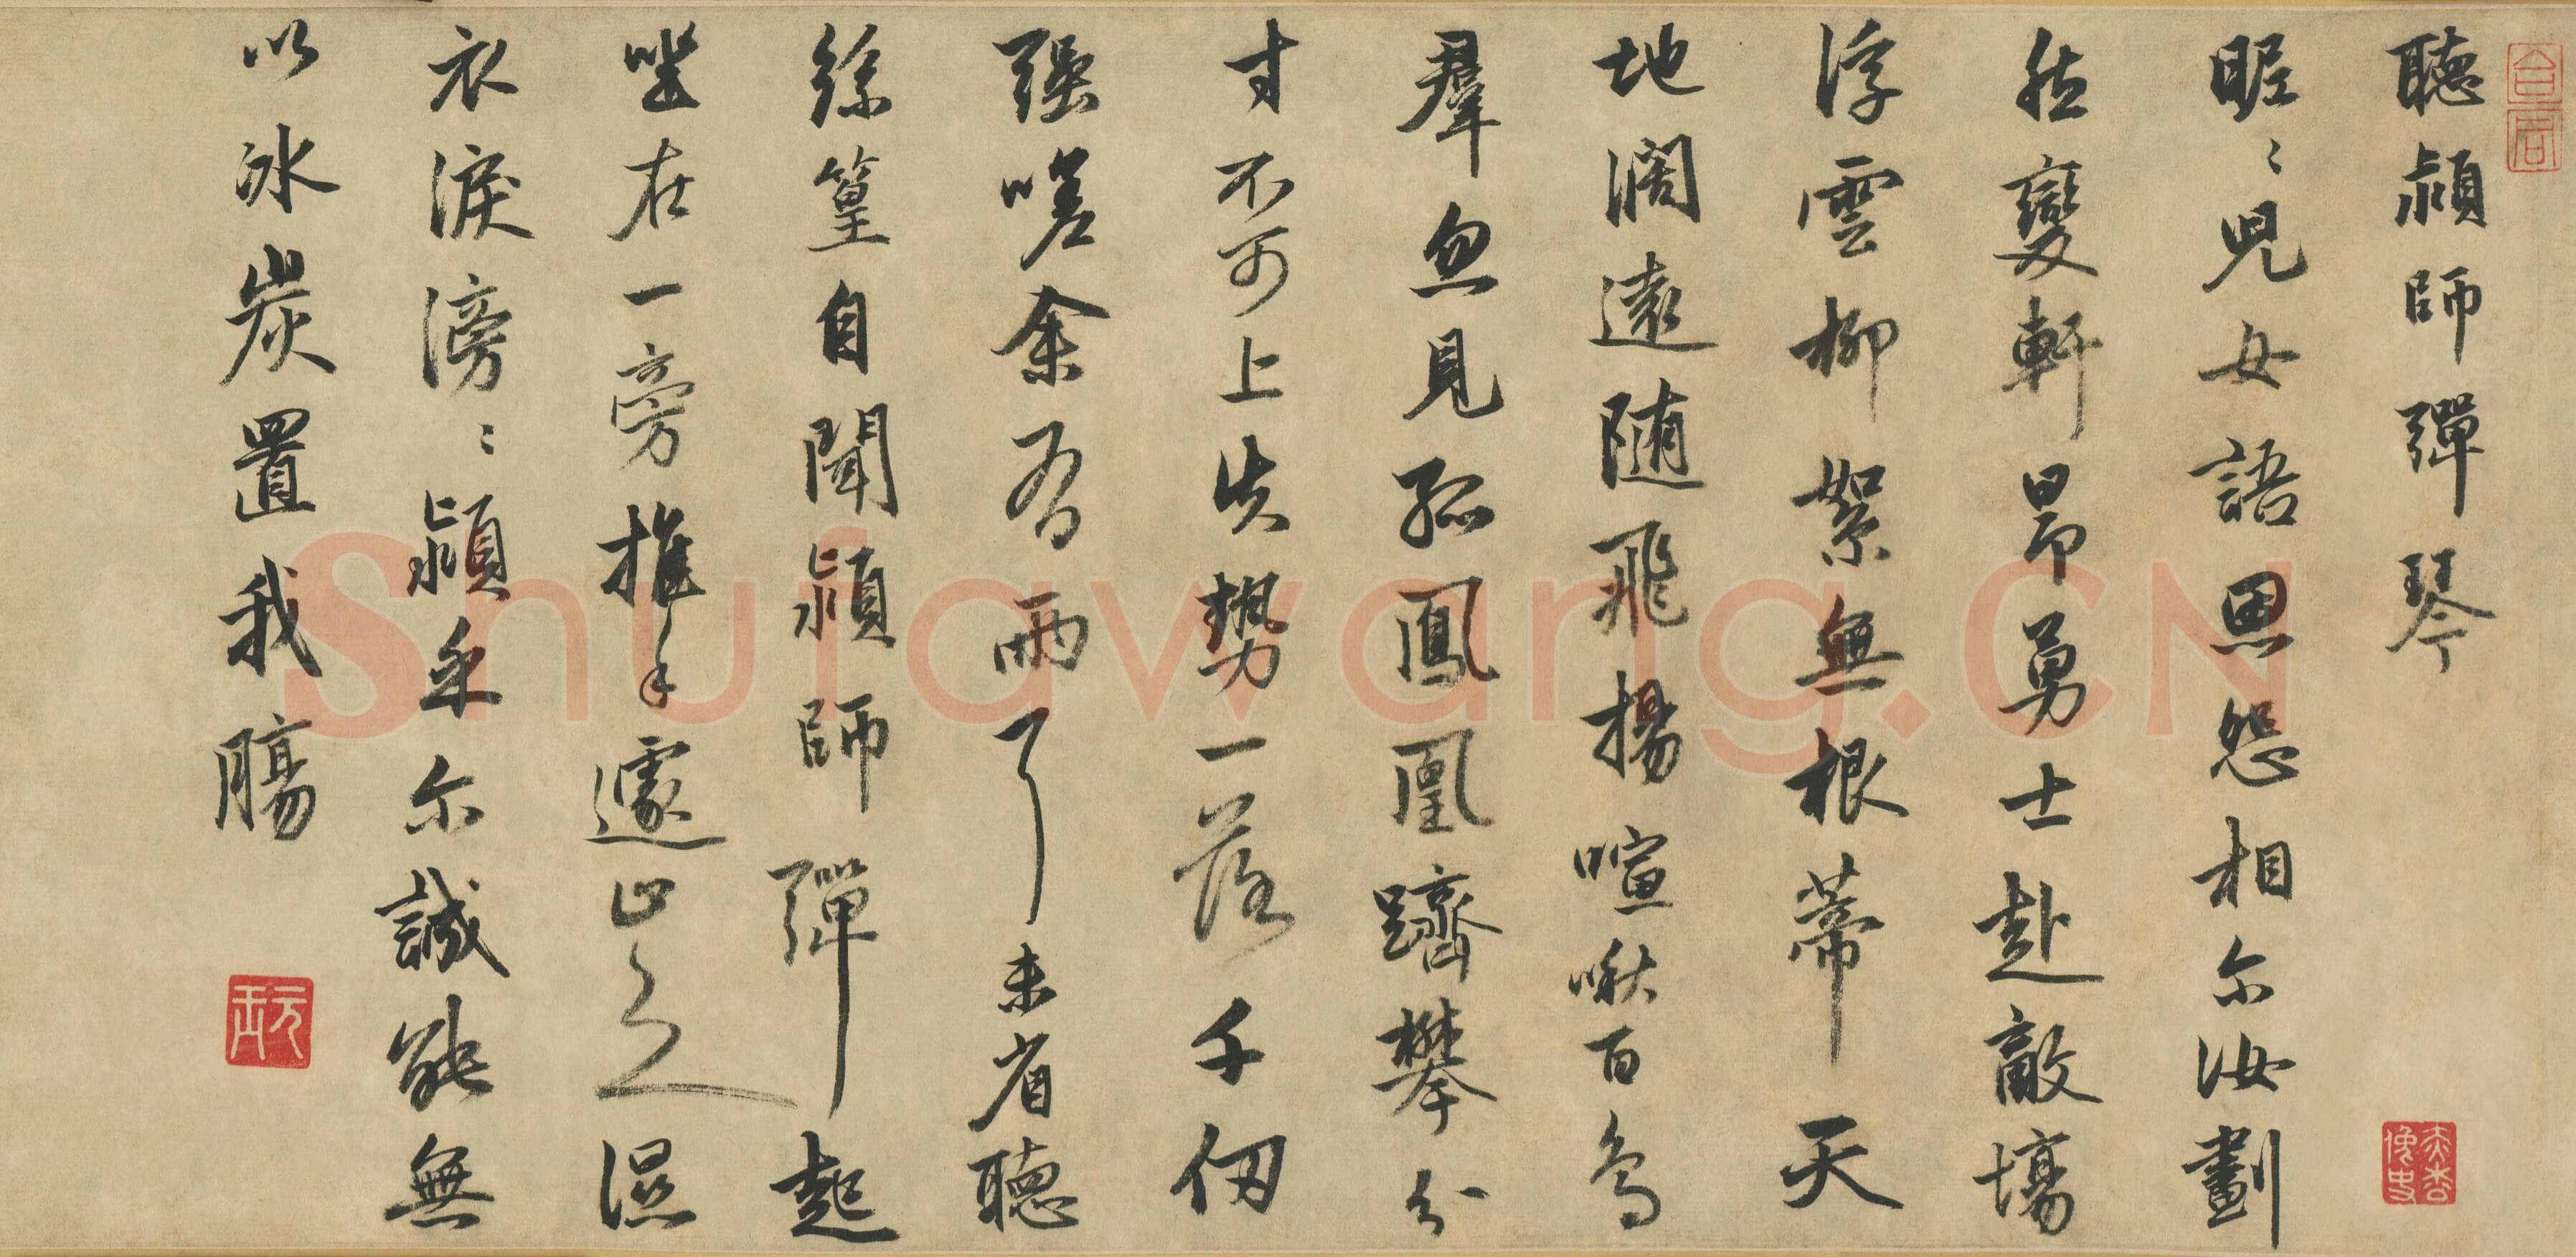 聽潁師彈琴
昵〻兒女語恩怨相尒汝劃
然變軒昂勇士赴敵塲
浮雲柳絮無根蒂天
地濶遠随飛揚喧啾百鳥
羣忽見孤鳳凰躋攀分
寸不可上失勢一落千仞
强嗟余有兩耳未省聽
絲篁自聞潁師彈起
坐在一旁推手遽止之湿
衣淚滂〻潁乎尒誠能無
以冰炭置我腸
合同
Shufawang.CN